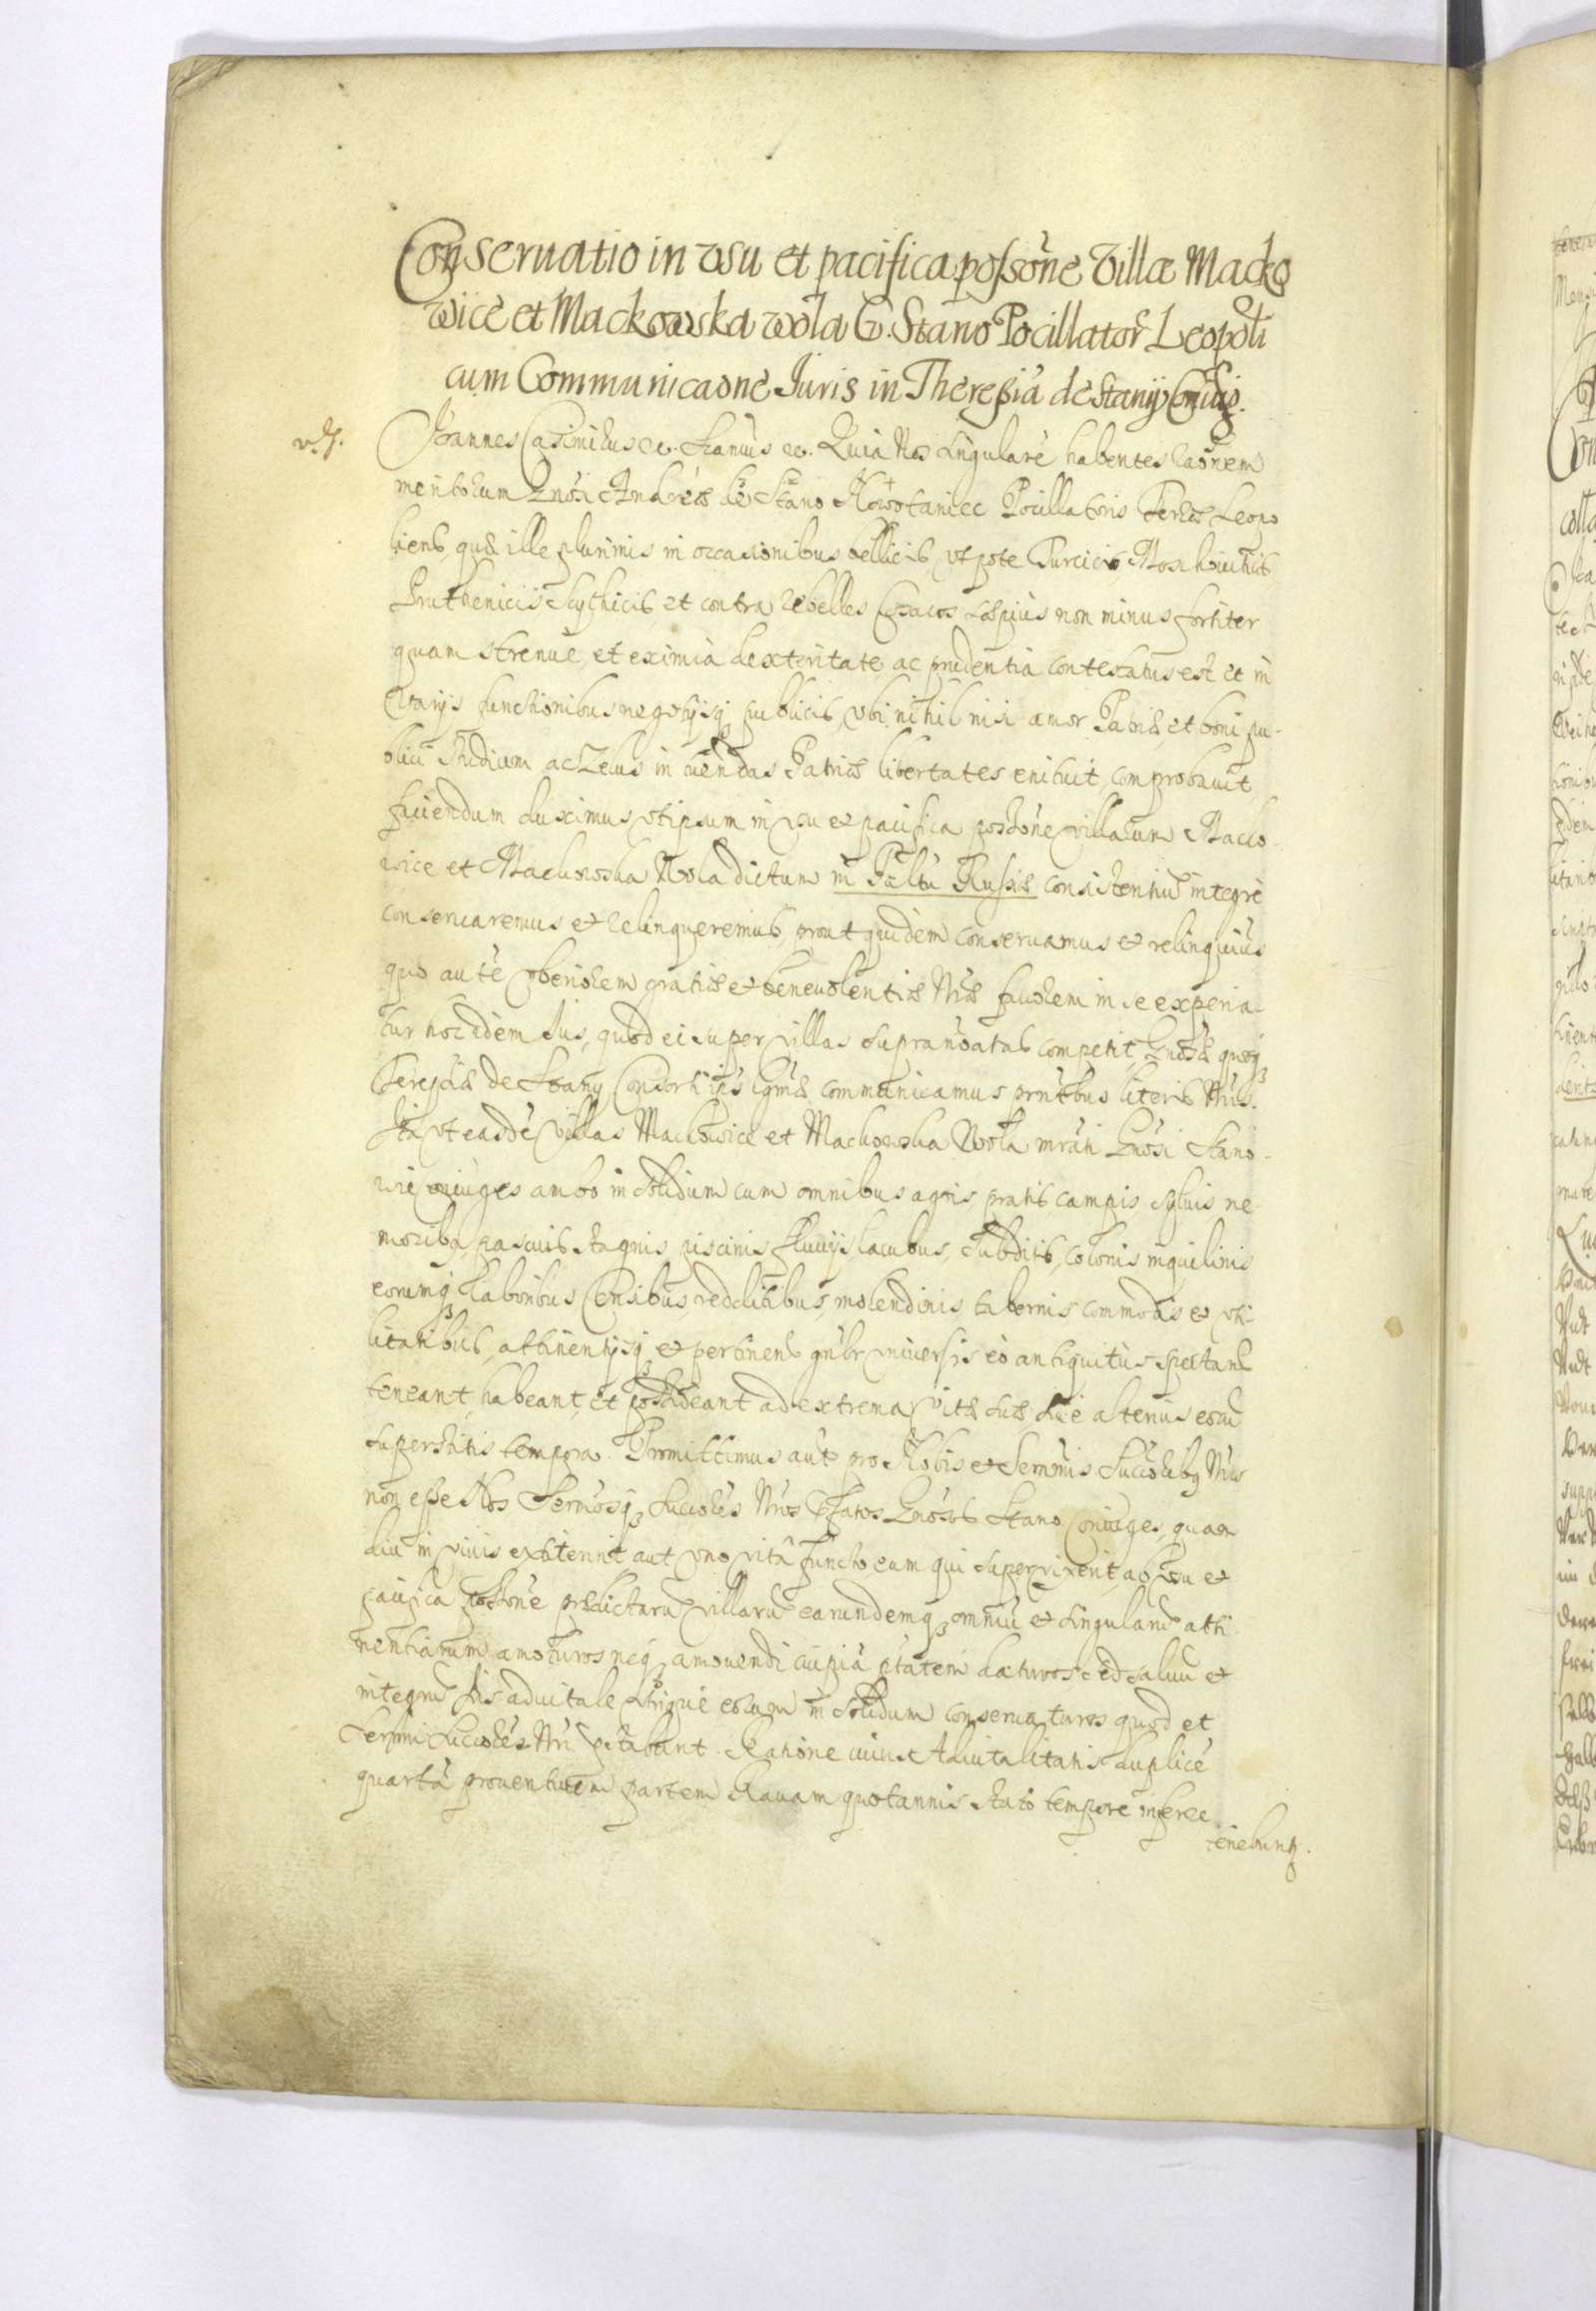 Conseruatio in vsu et pacifica possone Villæ Macko
wice et Mackowska wola G. Stano Pocillator Leopoli
cum Communicaone Juris in Theresia de Stanÿ Coniug.
Joannes Casimirus etc. Quia Nos singularē habentes raonem
meritorum Gnosi Andreæ de Stano Nowotaniec Pocillatoris Terræ Leopo
liens quæ ille plurimis in occasionibus bellicis, vtpote Turcicis Moschouiticis
Pruthenicis Scythicis et contra rebelles Cosacos sæpius non minus fortiter
quam strenuè, et eximia dexteritate ac prudentia contestatus est et in
varijs functionibus negotijsq publicis, vbi nihil nisi amor Patriæ et boni pu-
blici studium ac Zelus in tuendas Patriæ libertates enituit, comprobauit
faciendum duximus vt ipsum in vsu et pacifica possone villarum Macko
wice et Mackowska Wola dictum in Paltu Russiæ consistentiū integrè
conseruaremus et relinqueremus, prout quidem conseruamus et relinquius
quo aute vberiorem gratiæ et beneuolentiæ Nræ fauorem in se experia-
tur hoc idem Jus, quod ei super villas supranoatas competit, Gnosæ quoq
Teresiæ de Stany Consorti ips lgmæ communicamus pntbus literis Nris.
Ita vt easdē villas Mackowice et Mackowska Wola mrati Gnosi Stano-
wie coniuges ambo in solidum cum omnibus agris, pratis, campis, syluis ne
moribq pascuis stagnis piscinis fluuijs, lacubus, subditis, colonis inquilinis
eorumq laboribus Censibus, redditibus, molendinis tabernis commodis et vti-
litatibus, attinentijsq et pertinens gnlr vniuersis eò antiquitus spectans
teneant, habeant, et possideant ad extrema vitæ suæ siue alterius eorū
superstitis tempora. Promittimus aut pro Nobis et Serennis Succoribq Nris
non esse Nos Sermosq Succores Nros pfatos Gnosos Stano Coniuges, quam
diu in viuis extiterint aut vno vitâ functo eum qui superuixerit, ab vsu et
pacifica possone prædictarū villarū earundemq omniū et singularū atti
nentiarum amoturos neq amouendi cuipiā ptatem daturos sed saluū et
integrū Jus aduitale vtriqué eorum in solidum conseruaturos quod et
Sermi Succores Nri pstabunt. Ratione cuius Aduitalitatis duplicē
quartā prouentuum partem Rauam quotannis stato tempore inferre
tenebunt.